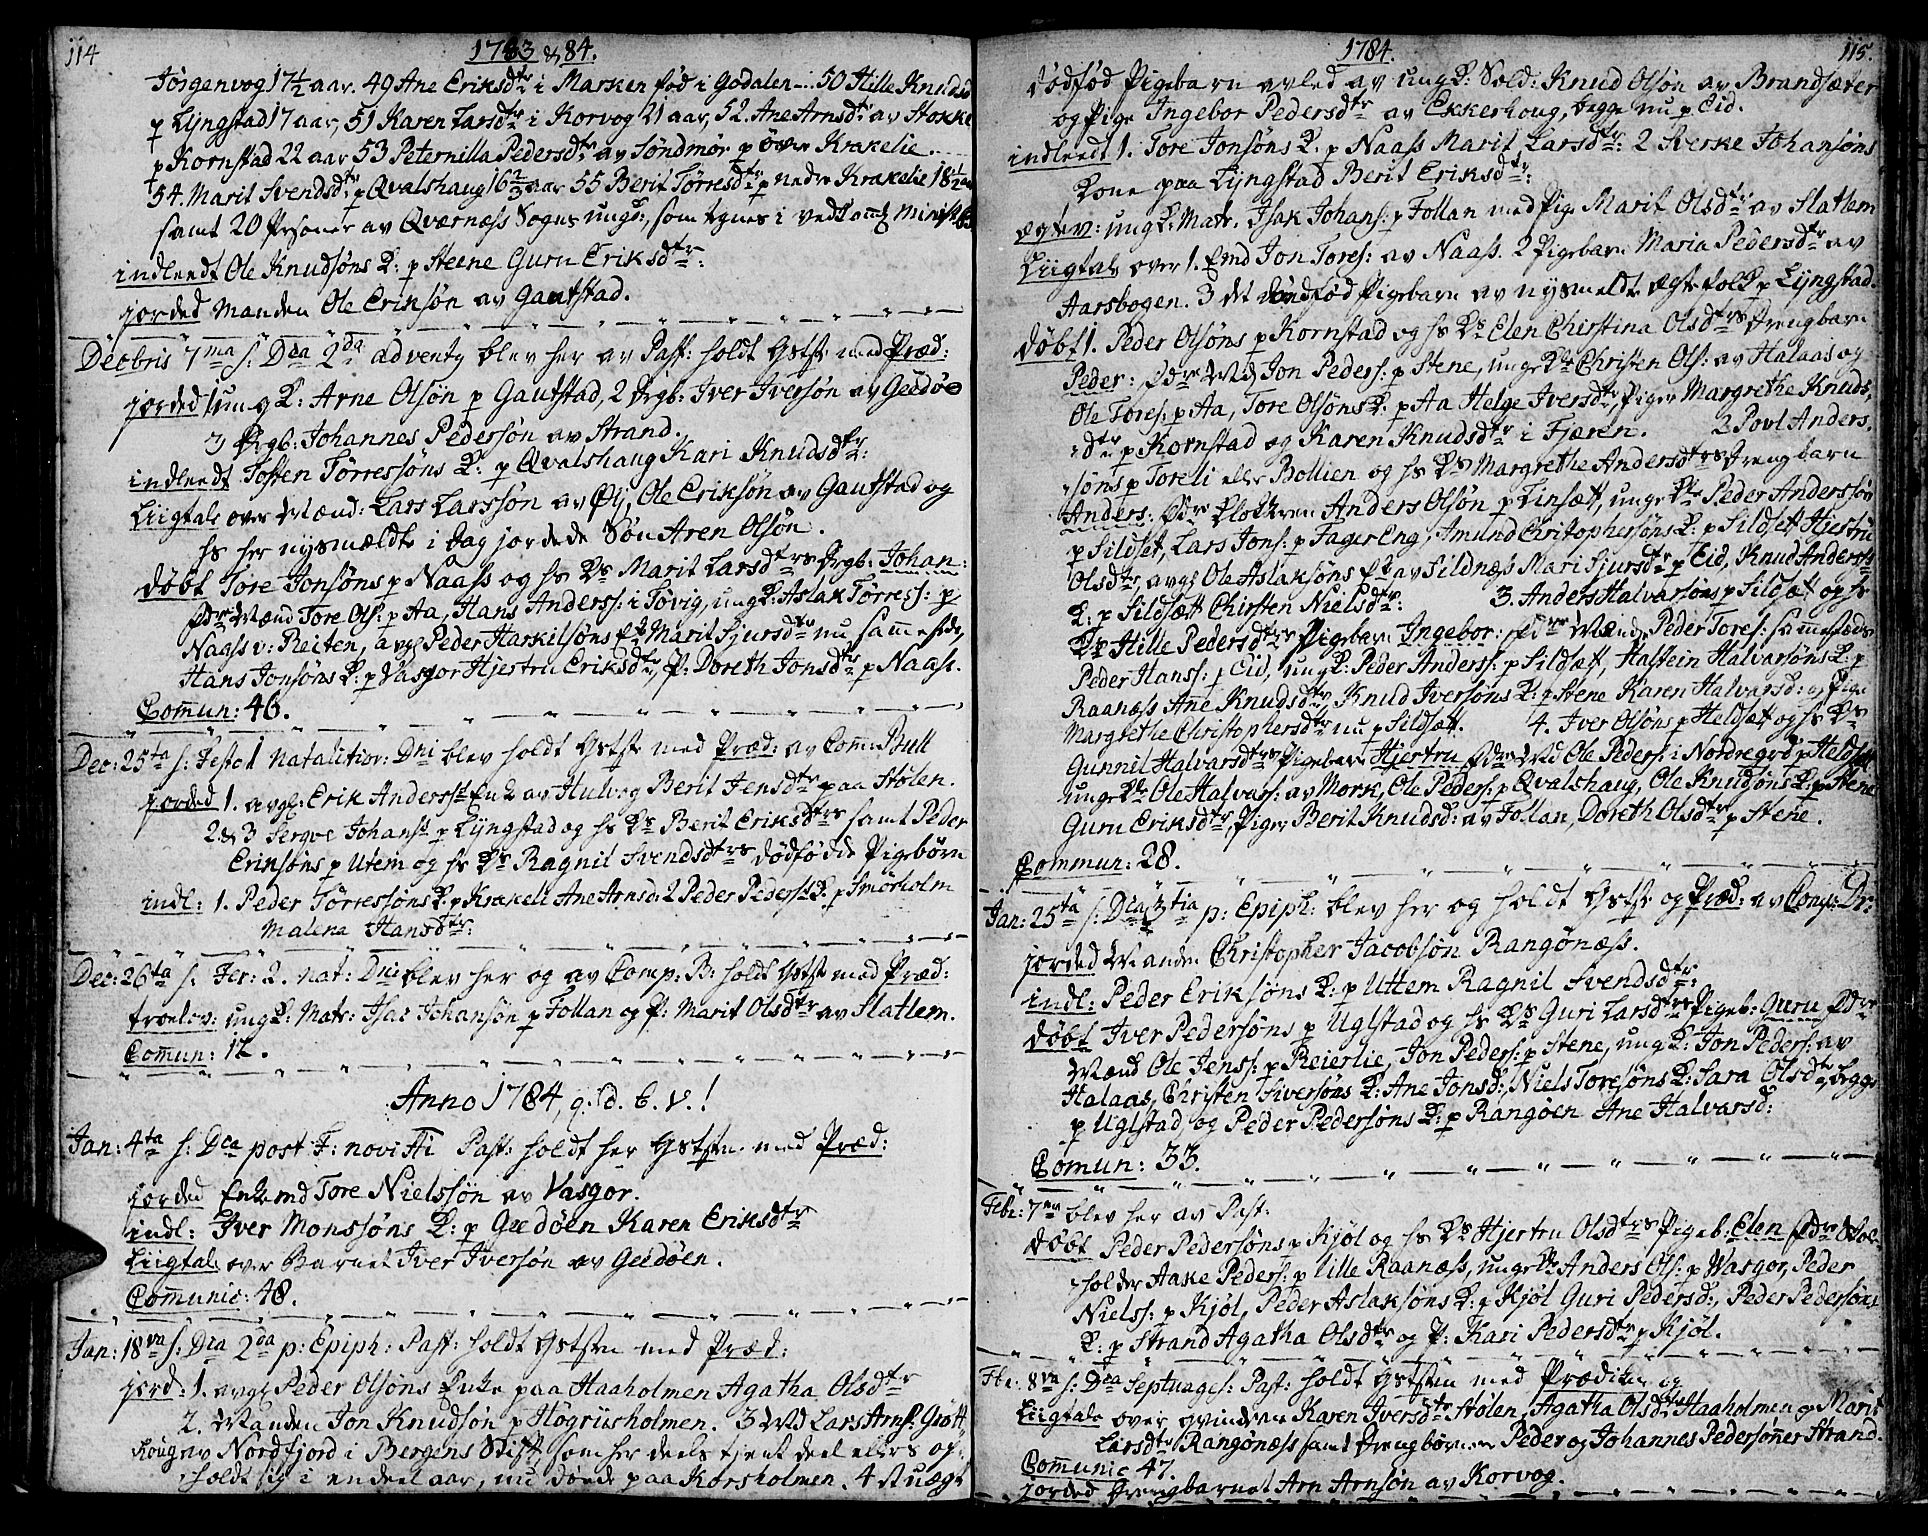 114
1783 & 84.
Jörgenvog 17½ aar. 49 Ane Eriksdtr i Marken fød i Godalen 50 Hille Knudsd
p Lyngstad 17 aar, 51 Karen Larsdtr i Korvog 21 aar, 52. Ane Arnsdtr av Stokke
p Kornstad 22 aar 53 Peternilla Pedersdtr av Søndmør p övre Krakelie
54. Marit Svendsdtr p Qvalshaug 16⅔ aar 55 Berit Törresdtr p nedre Krakelie 18½ aar
samt 20 Psoner av Qvernæss Sogns ungd:, som tegnes i vedk
indleedt Ole Knudsöns K: p Steene Guru Eriksdtr:
jorded Manden Ole Eriksön av Gautstad.
Decbris 7ma s: Dca 2da adventg blev her av Past: holdt Gstste med Præd:
jorded 1 ung K: Arne Olsön p Gautstad, 2 Drgb: Iver Iversön av Geedöe
3 Drgb: Johannes Pedersön av Strand.
indleedt Tosten Törressöns K: p Qvalshaug Kari Knudsdtr:
Liigtale over Mænd: Lars Larssön av Öy, Ole Eriksön av Gautstad og
hs her nysmældte i dag jordede Sön Aren Olsön.
döbt Tore Jonsöns p Naass og hs Ks Marit Larsdtrs Drgb: Johan:
Fdre Mænd Tore Ols: p Aa, Hans Anderss: i Tövig, ung K: Aslak Törress: p
Naass v: Reiten, avgs Peder Harkilsöns Ek Marit Sjursdtr nu sammesteds,
Hans Jonsöns K: p Vasgor Hjertru Eriksdtr, P: Doreth Jonsdtr p Naass.
Commun: 46.
Dec: 25ta s: Festo 1 Natalitior: Dni blev holdt Gstste med Præd: av Comm Bull
jorded 1. avgs: Erik Anderss Enke av Hulvog Berit Jensdtr paa Stølen.
2 & 3 Sergve Johans: p Lyngstad og hs Ks Berit Eriksdtrs samt Peder
Eriksöns p Utem og hs Ks Ragnil Svendsdtrs dødfødde Pigebørn
indl: 1. Peder Törressöns K: p Krakeli Ane Arnsd: 2 Peder Pederss K: p Smörholm
Malena Hansdtr:
Dec: 26ta s: Fer: 2. nat: Dni blev her og av Comp: B: holdt Gstste med Præd:
troelov: ung K: Matr: Isac Johansön p Follan og P: Marit Olsdtr av Slatlem.
Commun: 12.
Anno 1784, q: d. b. v.!
Jan: 4ta s: Dca post F: novi Ai Past: holdt her Gstste med Præd:
jorded Enkemd Tore Nielssön av Vasgor.
indl: Iver Monssöns K: p Geedöen Karen Eriksdtr
Liigtale over Barnet Iver Iversön av Geedöen.
Communic: 48.
Jan: 18va s: Dca 2da p: Epiph: Past: holdt Gstste med Præd:
jord: 1. avgs Peder Olsöns Enke paa Haaholmen Agatha Olsdtr
2. Manden Jon Knudsön p Högriisholmen. 3 Md Lars Arns: Grött
houg av Nordfjord i Bergens Stift, som her deels tjent deel ellers op-
holdt sig i en deel aar, nu döde paa Korsholmen. 4 et uægt
1784.
115.
dødfød Pigebarn avled av ung K: Sold: Knud Olsön av Brandsæter
og Pige Ingebor Pedersdtr av Ekkerhoug, begge nu p Eid.
indleedt 1. Tore Jonsöns K. p Naass Marit Larsdtr: 2 Sverke Johansöns
Kone paa Lyngstad Berit Eriksdtr:
egtev: ung K: Matr. Isak Johans: p Follan med Pig: Marit Olsdtr av Slatlem
Liigtale over 1. Emd Jon Tores: av Naass. 2 Pigebarn Maria Pedersdtr av
Aarsbogen. 3 det dødfød Pigebarn av nysmeldte egtefolk p Lyngstad.
döbt 1. Peder Olsöns p Kornstad og hs Ks Elen Christina Olsdtrs Drengbarn
Peder: Fdre Md Jon Peders: p Stene, unge Ke Christen Ols: av Halaas og
Ole Tores: p Aa, Tore Olsöns K: p Aa Helge Iversdtr, Piger Margrethe Knuds-
dtr p Kornstad og Karen Knudsdtr i Fjæren. 2 Povl Anders-
söns p Toreli eller Bollien og hs Ks Margrethe Andersdtrs Drengbarn
Anders: Fdre Klokkeren Anders Olsön p Linsætt, unge Ke Peder Anderssön
p Sildset, Lars Jons: p Fager Eng, Amund Christophersöns K: p Sildsett Hjertru
Olsdtr, avgs Ole Aslaksöns Ek av Sildnæs Mari Sjursdtr p Eid, Knud Anderss
K: p Sildsett Chirsten Nielsdtr: 3. Anders Halvarsöns p Sildset og hs
Ks Hille Pedersdtrs Pigebarn Ingebor: Fdre Mænd Peder Tores: sammesteds
Peder Hanss: p Eid, ung K: Peder Anderss: p Sildsett, Halstein Halvarsöns K: p
Raanæss Anne Knudsdtr, Knud Iversöns K: p Stene Karen Halvarsd: og Pige
Margrethe Christophersdtr nu p Sildsett. 4. Iver Olsöns p Heldsett og hs Ks
Gunnil Halvarsdtrs Pigebarn Hjertru Fdre Md Ole Peders: i Nordregrd p Heldsett
unge Ke Ole Halvars: av Mork, Ole Peders: p Qvalshaug, Ole Knudsöns K: p Stene
Guru Eriksdtr, Piger Berit Knudsd: av Follan, Doreth Olsdtr p Stene.
Commun: 28.
Jan: 25ta s: Dca 3tia p: Epiph: blev her og holdt Gstste og Præd: av Comp: Dr:
jorded Manden Christopher Jacobsön Rangönæss.
indl: Peder Eriksöns K: p Uttem Ragnil Svendsdtr:
döbt Iver Pedersöns p Uglstad og hs Ks Guri Larsdtrs Pigeb: Guru Fdre
Mænd Ole Jens: p Reierlie, Jon Peders: p Stene, ung K: Jon Peders: av
Halaas, Christen Siversöns K: Ane Jonsd: Niels Toresöns K: Sara Olsdtr, begge
p Uglstad, og Peder Pedersöns K: p Rangöen Ane Halvarsd:
Comun: 33.
Febr: 7ma blev her av Past:
döbt Peder Pedersöns p Kjöl og hs Ks Hjertru Olsdtrs Pigeb: Elen Fdre
holder Aake Peders: p Lille Raanæss, unge Ke Anders Ols: p Vasgor, Peder
Niels: p Kjöl, Peder Aslaksöns K: p Kjöl Guri Pedersd:, Peder Pedersöns
K: p Strand Agatha Olsdtr og P: Kari Pedersdtr p Kjöl.
Febr: 8va s: Dca Septuages: Past: holdt Gstste med Prædiken og
Liigtale over qvinderne Karen Iversdtr Stølen, Agatha Olsdtr Haaholmen og Marit
Larsdtr Rangönæss samt Drengbørnene Peder og Johannes Pedersönner Strand.
Communic 47.
jorded Drengbarnet Arn Arnsön av Korvog.